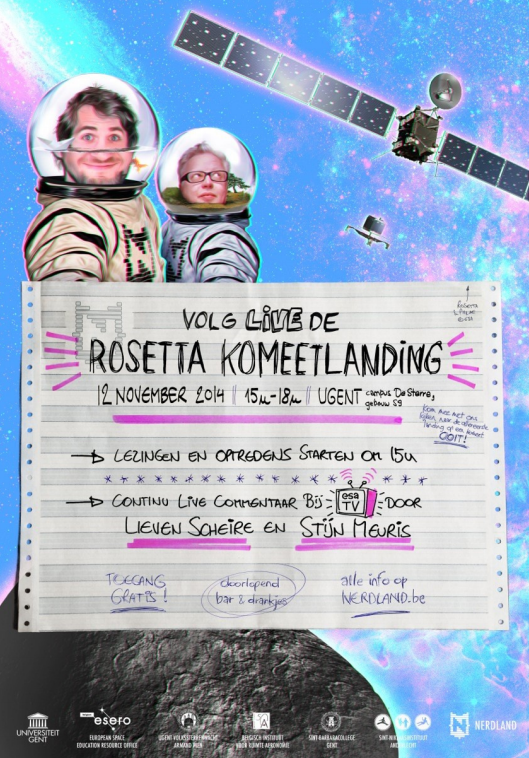 VOLG LIVE DE
ROSETTA KOMEETLANDING
12 NOVEMBER 2014 || 15u-18u || UGENT campus De Sterre, gebouw S9
OOIT!
→ LEZINGEN EN OPTREDENS STARTEN OM 15u
→ CONTINU LIVE COMMENTAAR BIJ esa TV DOOR
LIEVEN SCHEIRE EN STIJN MEURIS
TOEGANG GRATIS!
doorlopend bar & drankjes
alle info op NERDLAND.be
UNIVERSITEIT GENT
esero
EUROPEAN SPACE EDUCATION RESOURCE OFFICE
UGENT VOLKSSTERRENWACHT ARMAND PIEN
BELGISCH INSTITUUT VOOR RUIMTE-AERONOMIE
SINT-BARBARACOLLEGE GENT
NERDLAND